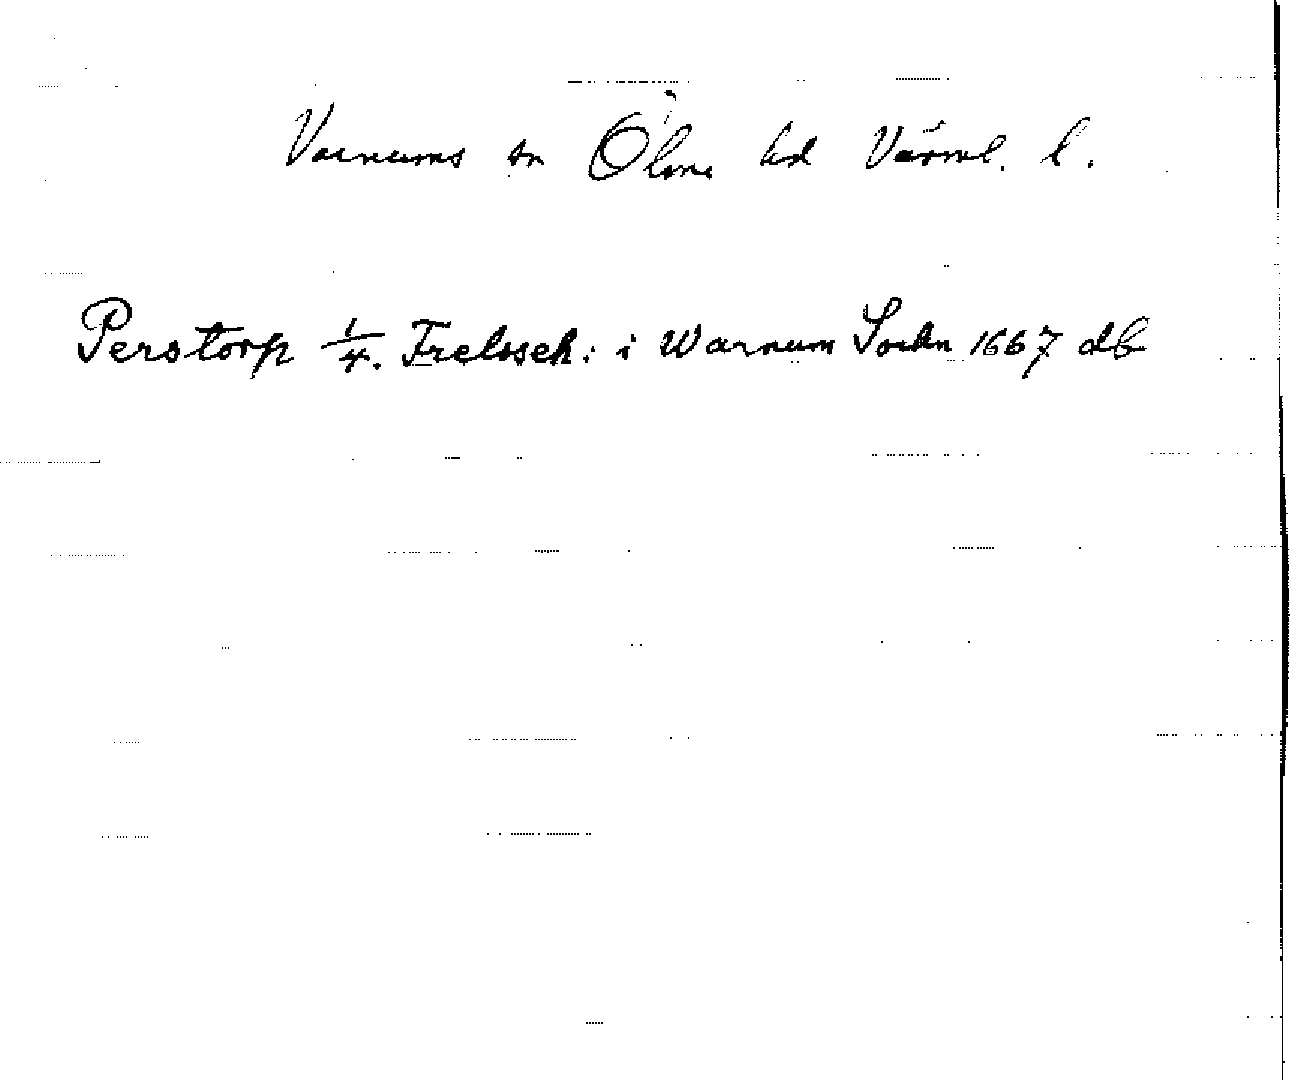 Varnums sn Ölme hd Värml. l.
Perstorp 1/4. Frelsseh: i Warnum Sochn 1667 db